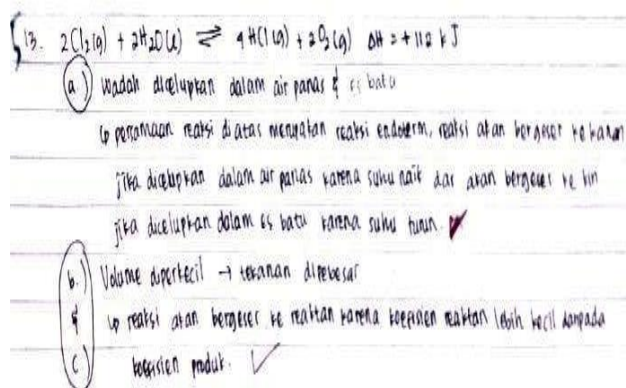 13. 2Cl₂(g) + 2H₂O(l) ⇌ 4HCl(g) + 2O₂(g) ΔH = +112 kJ
a.) wadah dicelupkan dalam air panas & es batu
↳ persamaan reaksi diatas merupakan reaksi endoterm, reaksi akan bergeser ke kanan
jika dicelupkan dalam air panas karena suhu naik dan akan bergeser ke kiri
jika dicelupkan dalam es batu karena suhu turun.
b.) Volume diperkecil → tekanan diperbesar
& ↳ reaksi akan bergeser ke reaktan karena koefisien reaktan lebih kecil daripada
c.) koefisien produk.